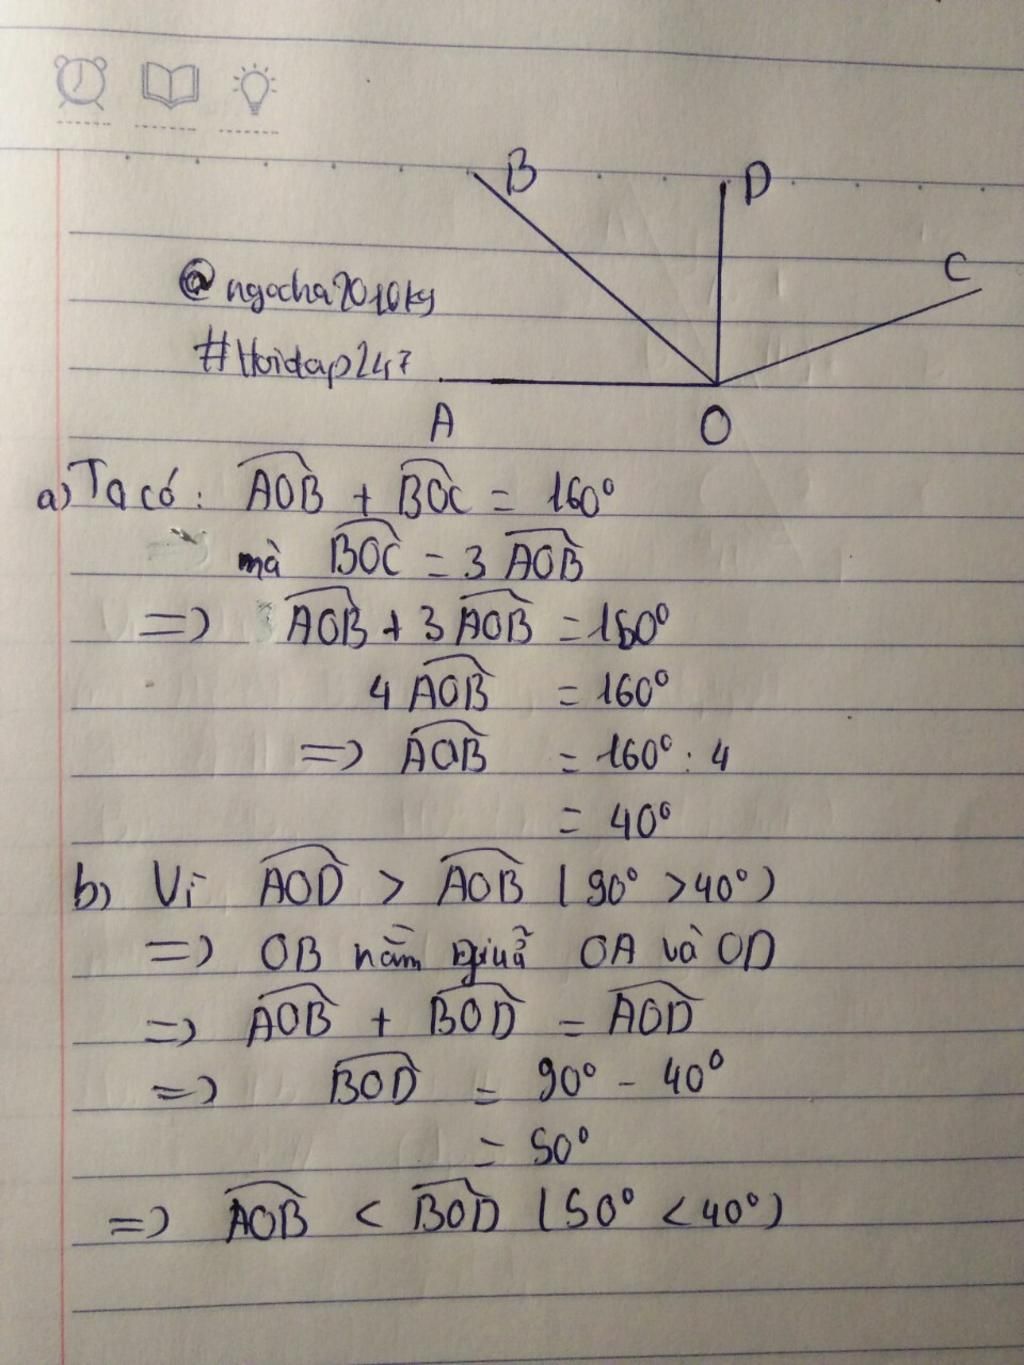 B
D
C
@ngocha2010kg
#Hoidap247
A
O
a) Ta có: AOB + BOC = 160°
mà BOC = 3 AOB
=> AOB + 3 AOB = 160°
4 AOB = 160°
=> AOB = 160° : 4
= 40°
b) Vì AOD > AOB (90° > 40°)
=> OB nằm giữa OA và OD
=> AOB + BOD = AOD
=> BOD = 90° - 40°
= 50°
=> AOB < BOD (50° < 40°)